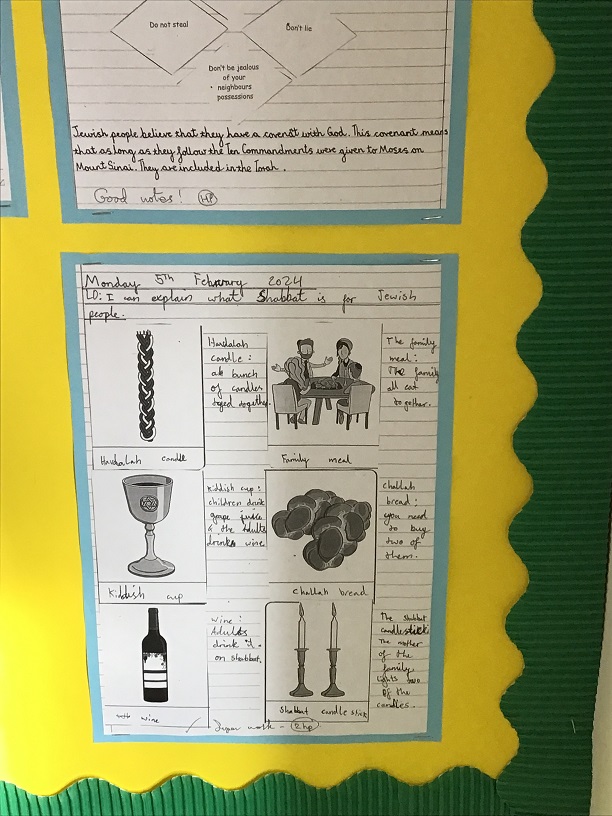 Do not steal
Don't lie
Don't be jealous
of your
neighbours
possessions
Jewish people believe that they have a covenat with God. This covenant means
that as long as they follow the Ten Commandments were given to Moses on
Mount Sinai. They are included in the Torah.
Good notes! HP
Monday 5th February 2024
LO: I can explain what Shabbat is for Jewish
people.
Havdalah
candle:
a bunch
of candles
together.
Havdalah candle
The family
meal:
The family
all eat
together.
Family meal
Kiddish cup:
children drink
grape juice
& the adults
drinks wine
Kiddish cup
challah
bread:
you need
to buy
two of
them.
challah bread
wine:
Adults
drink it
on shabbat.
wine
The shabbat
candlestick
The mother
of the
family
lights two
of the
candles.
Shabbat candle stick
work - 2hp